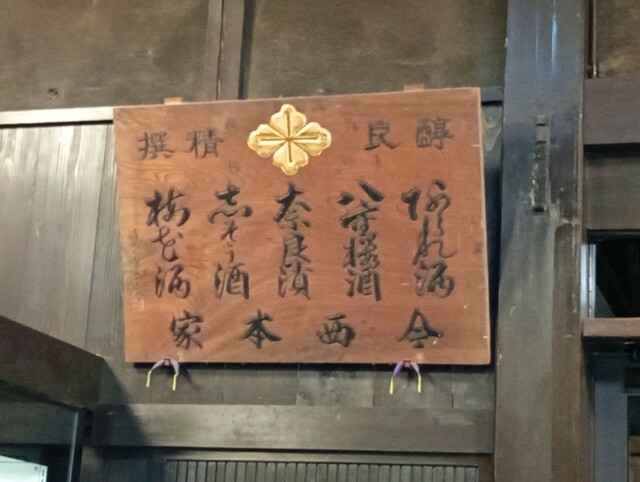 醇良
精撰
あられ酒
八重桜酒
奈良漬
志そう酒
梅花酒
今西本家